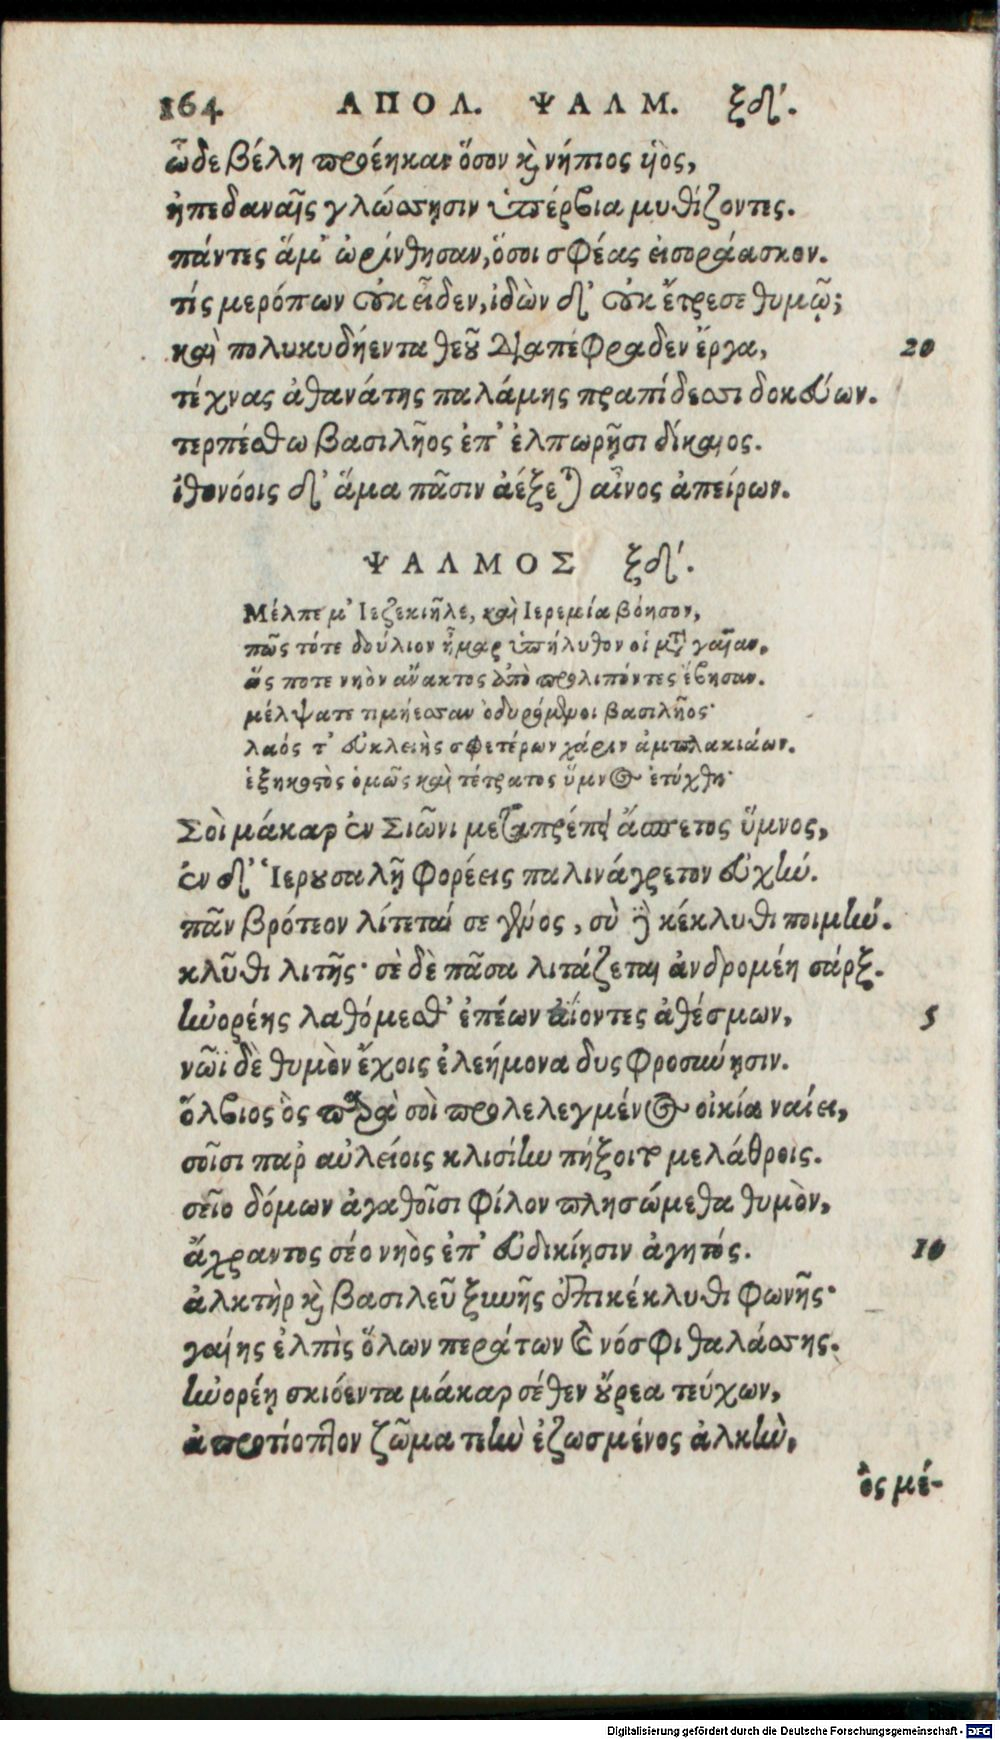 164 ΑΠΟΛ. ΨΑΛΜ. ξδʹ.
ὧδε βέλη προέηκαν ὅσον κὶ νήπιος ἡὸς,
ἠπεδαναῖς γλώσσησιν ὑπέρβια μυθίζοντες.
πάντες ἅμ' ὠρίνθησαν, ὅσοι σφέας εἰσοράασκον.
τίς μερόπων οὐκ εἶδεν, ἰδὼν δ' οὐκ ἔτρεσε θυμῷ;
καὶ πολυκυδήεντα θεοῦ διαπέφραδεν ἔργα, 20
τέχνας ἀθανάτης παλάμης πραπίδεσσι δοκεύων.
τερπέσθω βασιλῆος ἐπ' ἐλπωρῇσι δίκαιος.
ἰθυνόοις δ' ἅμα πᾶσιν ἀέξεται αἶνος ἀπείρων.
ΨΑΛΜΟΣ ξδʹ.
Μέλπε μ' Ιεζεκιῆλε, καὶ Ιερεμία βόησον,
πῶς τότε δούλιον ἦμαρ ὑπήλυθον οἱ μετὰ γαῖαν,
ὥς ποτε νηὸν ἄνακτος ἀπὸ προλιπόντες ἔβησαν.
μέλψατε τιμήεσσαν ὀδυρόμενοι βασιλῆος·
λαός τ' εὐκλειὴς σφετέρων χάριν ἀμπλακιάων.
ἑξηκοστὸς ὁμῶς καὶ τέτρατος ὕμνος ἐτύχθη·
Σοὶ μάκαρ ἐν Σιῶνι μεταπρέπει ἄσπετος ὕμνος,
ἐν δ' Ἱερουσαλῆ φορέεις παλινάγρετον εὐχήν.
πᾶν βρότεον λίτεταί σε γένος, σὺ δὲ κέκλυθι ποιμήν.
κλῦθι λιτῆς· σὲ δὲ πᾶσα λιτάζεται ἀνδρομέη σάρξ.
ἠνορέης λαθόμεσθ' ἐπέων ἀΐοντες ἀθέσμων, 5
νῶϊ δὲ θυμὸν ἔχοις ἐλεήμονα δυςφροσύνῃσιν.
ὄλβιος ὃς παρὰ σοὶ προλελεγμένος οἰκία ναίει,
σοῖσι παρ' αὐλείοις κλισίην πήξοιτο μελάθροις.
σεῖο δόμων ἀγαθοῖσι φίλον πλησώμεθα θυμὸν,
ἄχραντος σέο νηὸς ἐπ' εὐδικίῃσιν ἀγητός. 10
ἀλκτὴρ κὶ βασιλεῦ ξυνῆς ἐπικέκλυθι φωνῆς·
γαίης ἐλπὶς ὅλων περάτων καὶ νόσφι θαλάσσης.
ἠνορέῃ σκιόεντα μάκαρ σέθεν οὔρεα τεύχων,
ἀπροτίοπτον ζῶμα τεὴν ἐζωσμένος ἀλκὴν,
ὃς μέ-
Digitalisierung gefördert durch die Deutsche Forschungsgemeinschaft - DFG